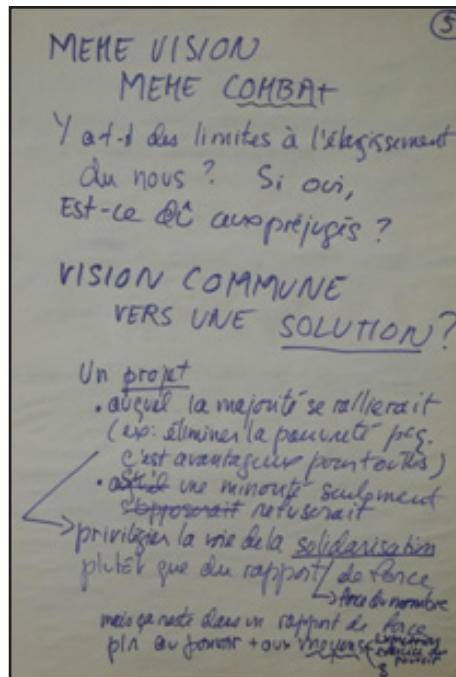 5
MEME VISION
MEME COMBAT
Y a-t-il des limites à l'élagissement
du nous ? Si oui,
Est-ce dû aux préjugés ?
VISION COMMUNE
VERS UNE SOLUTION ?
Un projet
• auquel la majorité se rallierait
(ex: éliminer la pauvreté pcq.
c'est avantageux pour toutes)
• une minorité seulement
s'opposerait refuserait
privilégier la voie de la solidarisation
plutôt que du rapport de force
→ force du nombre
mais ça reste dans un rapport de force
au pouvoir + aux moyens
exercice du
pouvoir